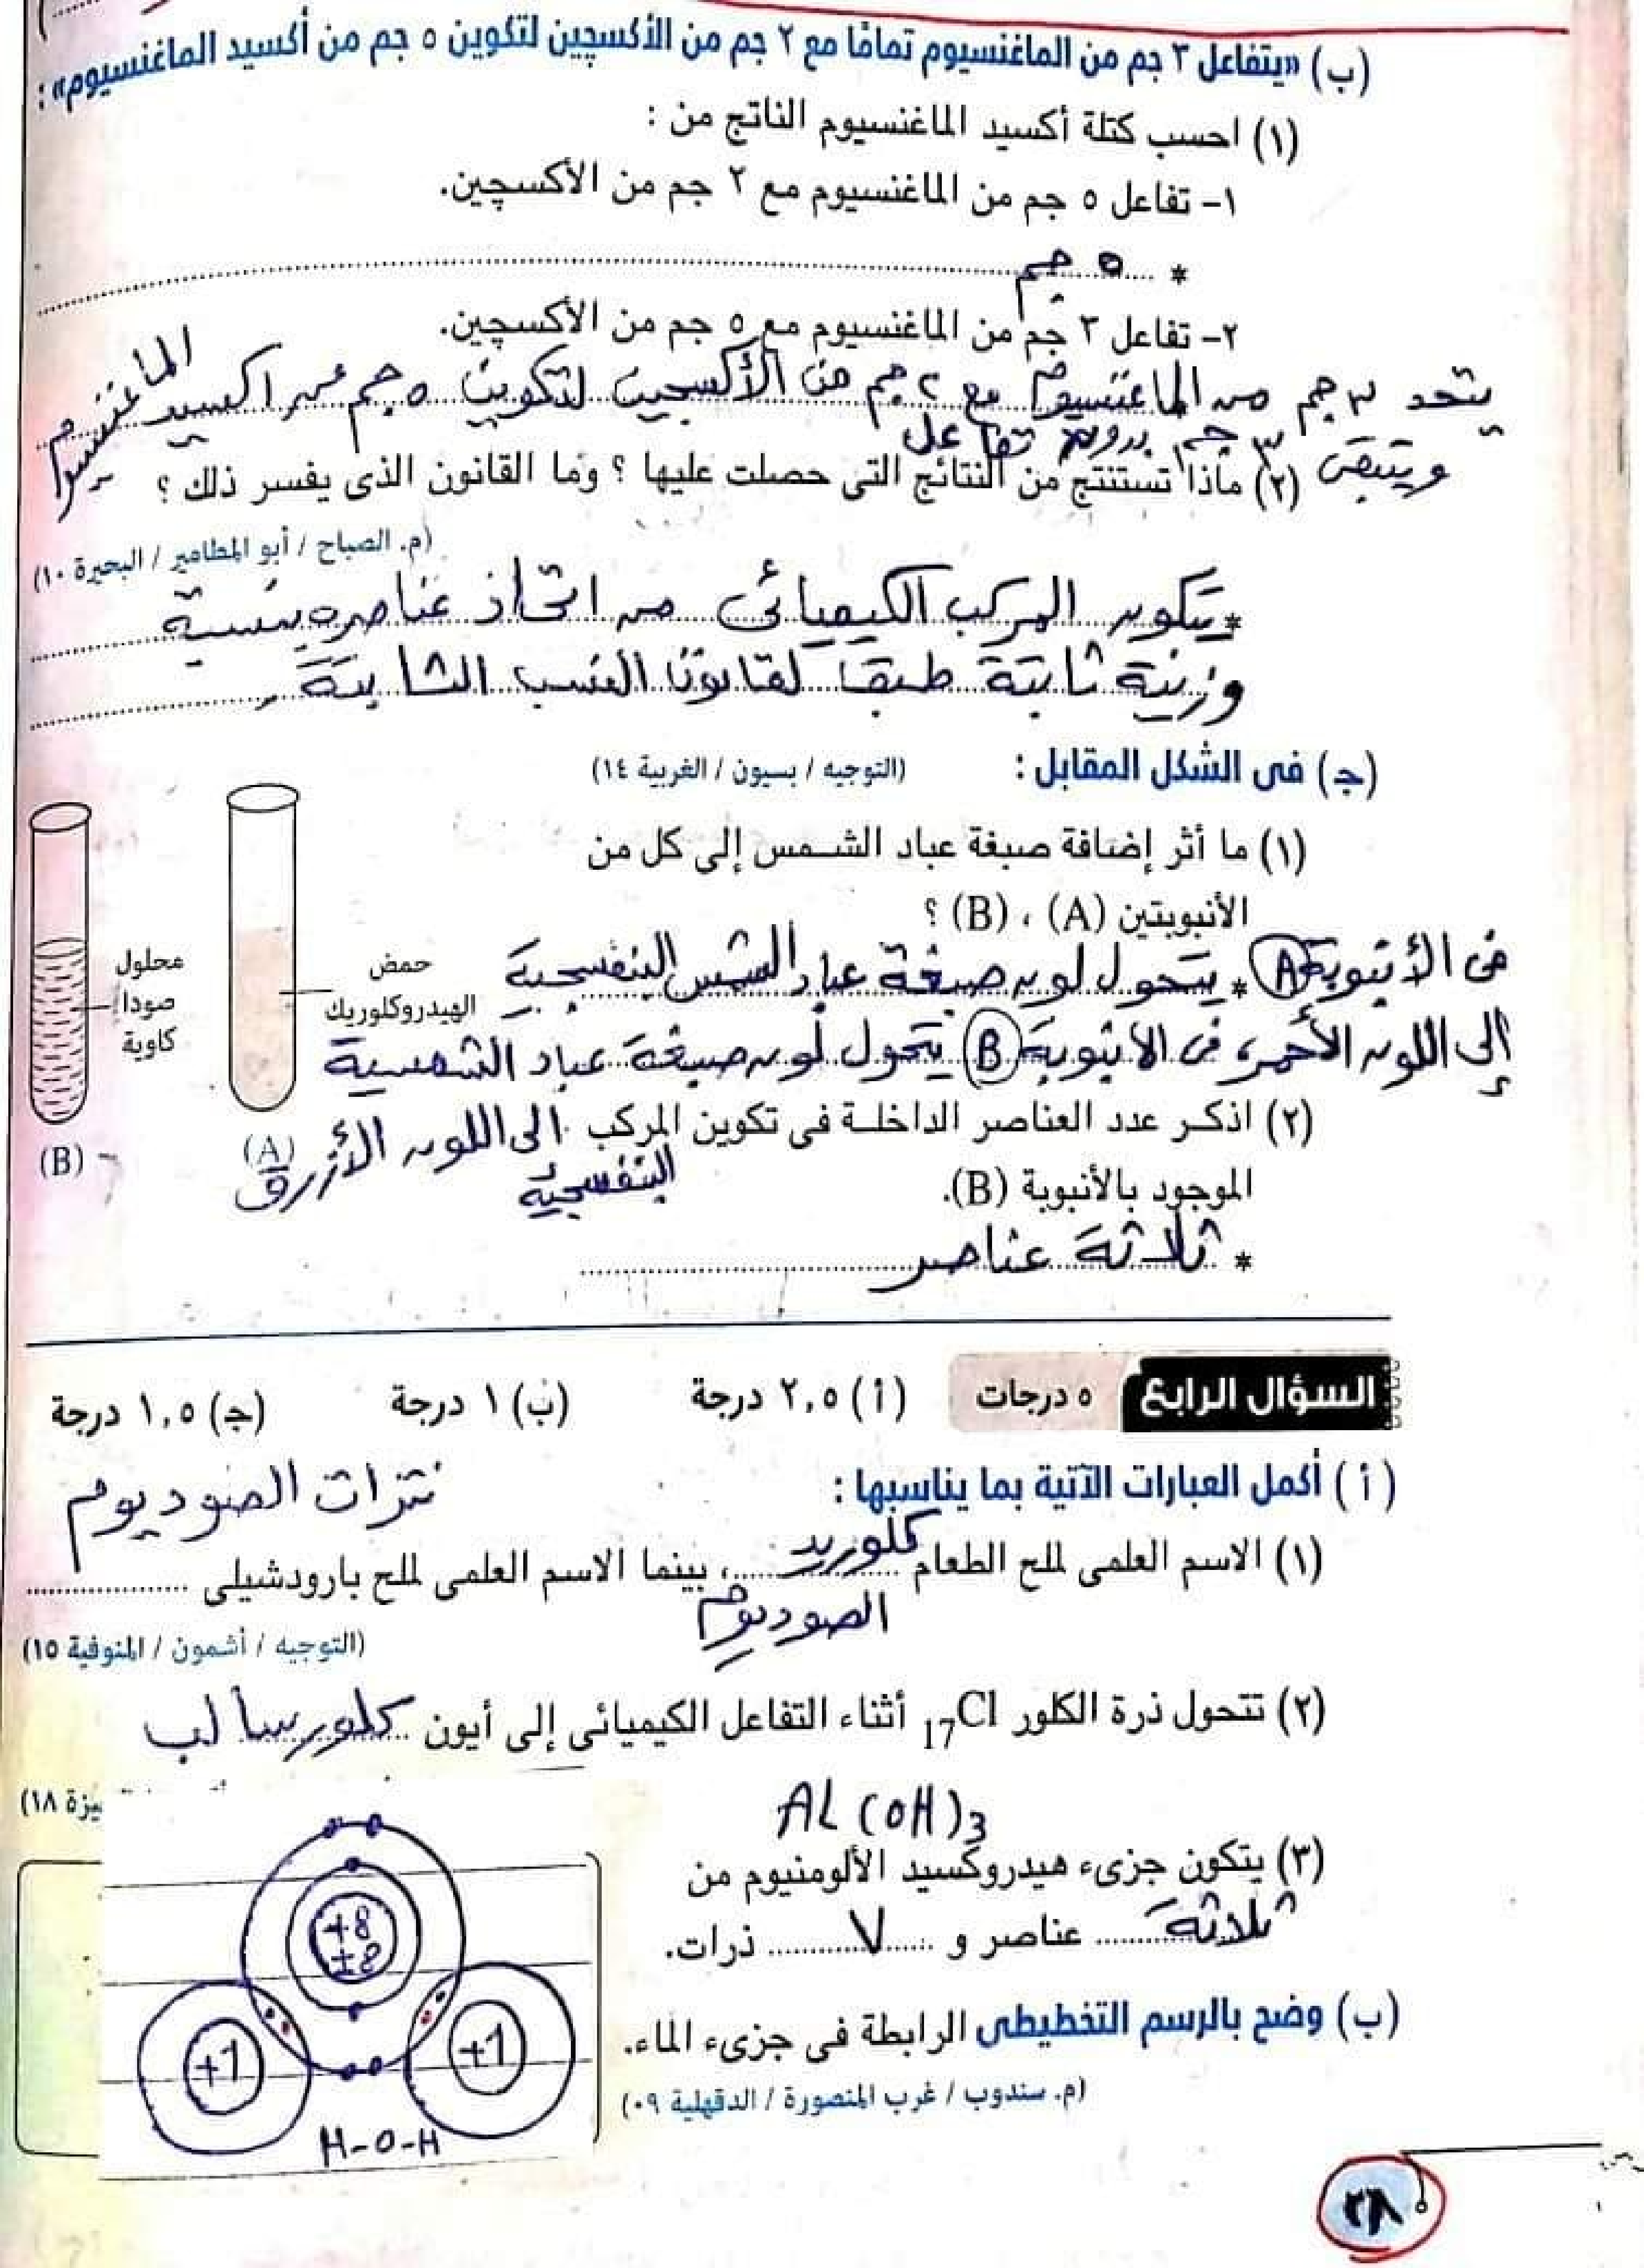 (ب) «يتفاعل ٣ جم من الماغنسيوم تمامًا مع ٢ جم من الأكسچين لتكوين ٥ جم من أكسيد الماغنسيوم» :
(١) احسب كتلة أكسيد الماغنسيوم الناتج من :
١- تفاعل ٥ جم من الماغنسيوم مع ٢ جم من الأكسچين.
* ٥ جم
٢- تفاعل ٣ جم من الماغنسيوم مع ٥ جم من الأكسچين.
يتحد ٣ جم من الماغنسيوم مع ٢ جم من الأكسجين لتكوين ٥ جم من اكسيد الماغنسيوم
ويتبقى ٣ جم بدون تفاعل
(٢) ماذا تستنتج من النتائج التى حصلت عليها ؟ وما القانون الذى يفسر ذلك ؟
(م. الصباح / أبو المطامير / البحيرة ١٠)
* يتكون المركب الكيميائى من اتحاد عناصره بنسبة
وزنية ثابتة طبقا لقانون النسب الثابتة
(جـ) فى الشكل المقابل :
(التوجيه / بسيون / الغربية ١٤)
(١) ما أثر إضافة صبغة عباد الشـمس إلى كل من
الأنبوبتين (A) ، (B) ؟
فى الأنبوبة A * يتحول لون صبغة عباد الشمس البنفسجية
إلى اللون الأحمر، فى الانبوبة B يتحول لون صبغة عباد الشمسية
البنفسجية الى اللون الأزرق
محلول
صودا
كاوية
حمض
الهيدروكلوريك
(B)
(A)
(٢) اذكـر عدد العناصر الداخلـة فى تكوين المركب
الموجود بالأنبوبة (B).
* ثلاثة عناصر
السؤال الرابع ٥ درجات (أ) ٢,٥ درجة (ب) ١ درجة (جـ) ١,٥ درجة
(أ) أكمل العبارات الآتية بما يناسبها :
(١) الاسم العلمى لملح الطعام كلوريد الصوديوم ، بينما الاسم العلمى لملح بارودشيلى نترات الصوديوم
(التوجيه / أشمون / المنوفية ١٥)
(٢) تتحول ذرة الكلور 17Cl أثناء التفاعل الكيميائى إلى أيون كلور سالب
يزة ١٨)
AL (OH)3
(٣) يتكون جزىء هيدروكسيد الألومنيوم من
ثلاثة عناصر و ٧ ذرات.
(ب) وضح بالرسم التخطيطى الرابطة فى جزىء الماء.
(م. سندوب / غرب المنصورة / الدقهلية ٠٩)
+8
±8
+1
+1
H-O-H
٣٨